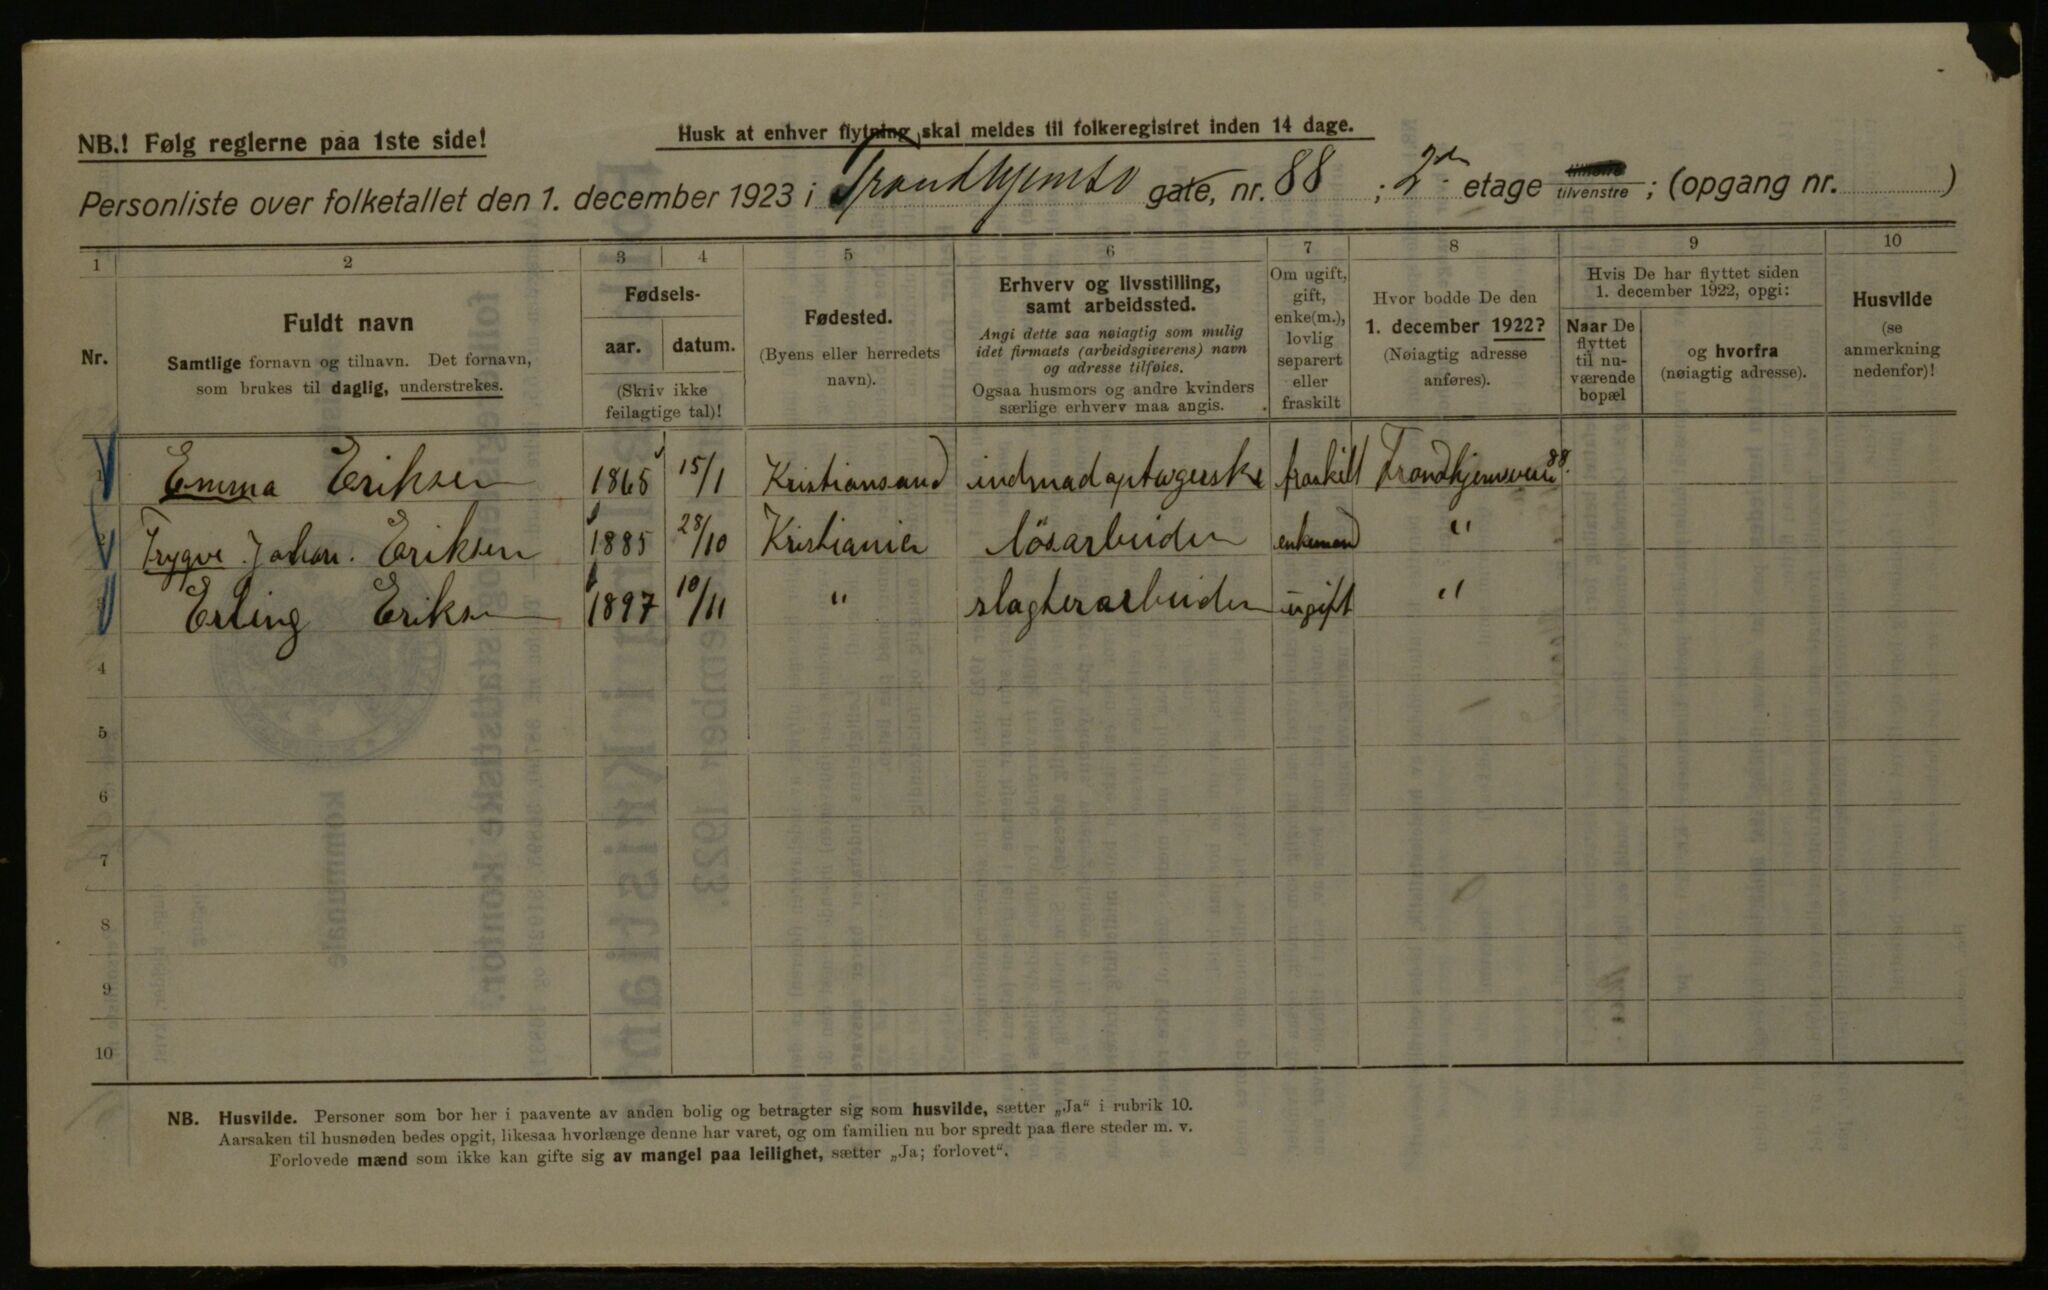 NB.! Følg reglerne paa 1ste side!
Husk at enhver flytning skal meldes til folkeregistret inden 14 dage.
Personliste over folketallet den 1. december 1923 i Trondhjemsv gate, nr. 88 ; 2den etage tilvenstre ; (opgang nr. )
1 2 3 4 5 6 7 8 9 10
Nr.
Fuldt navn
Samtlige fornavn og tilnavn. Det fornavn,
som brukes til daglig, understrekes.
Fødsels-
aar. datum.
(Skriv ikke
feilagtige tal)!
Fødested.
(Byens eller herredets
navn).
Erhverv og livsstilling,
samt arbeidssted.
Angi dette saa nøiagtig som mulig
idet firmaets (arbeidsgiverens) navn
og adresse tilføies.
Ogsaa husmors og andre kvinders
særlige erhverv maa angis.
Om ugift,
gift,
enke(m.),
lovlig
separert
eller
fraskilt
Hvor bodde De den
1. december 1922?
(Nøiagtig adresse
anføres).
Hvis De har flyttet siden
1. december 1922, opgi:
Naar De
flyttet
til nu-
værende
bopæl
og hvorfra
(nøiagtig adresse).
Husvilde
(se
anmerkning
nedenfor)!
1 Emma Eriksen 1865 15/1 Kristiansand indmadoptagerske fraskilt Trondhjemsveien 88.
2 Trygve Johan. Eriksen 1885 28/10 Kristiania løsarbeider enkemand "
3 Erling Eriksen 1897 10/11 " slagterarbeider ugift "
4
5
6
7
8
9
10
NB. Husvilde. Personer som bor her i paavente av anden bolig og betragter sig som husvilde, sætter „Ja" i rubrik 10.
Aarsaken til husnøden bedes opgit, likesaa hvorlænge denne har varet, og om familien nu bor spredt paa flere steder m. v.
Forlovede mænd som ikke kan gifte sig av mangel paa leilighet, sætter „Ja; forlovet".